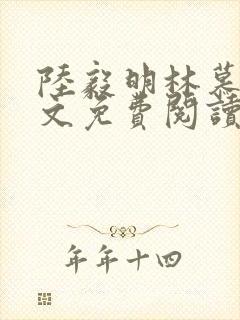 陸毅明林慕
文免費閱讀
年年十四